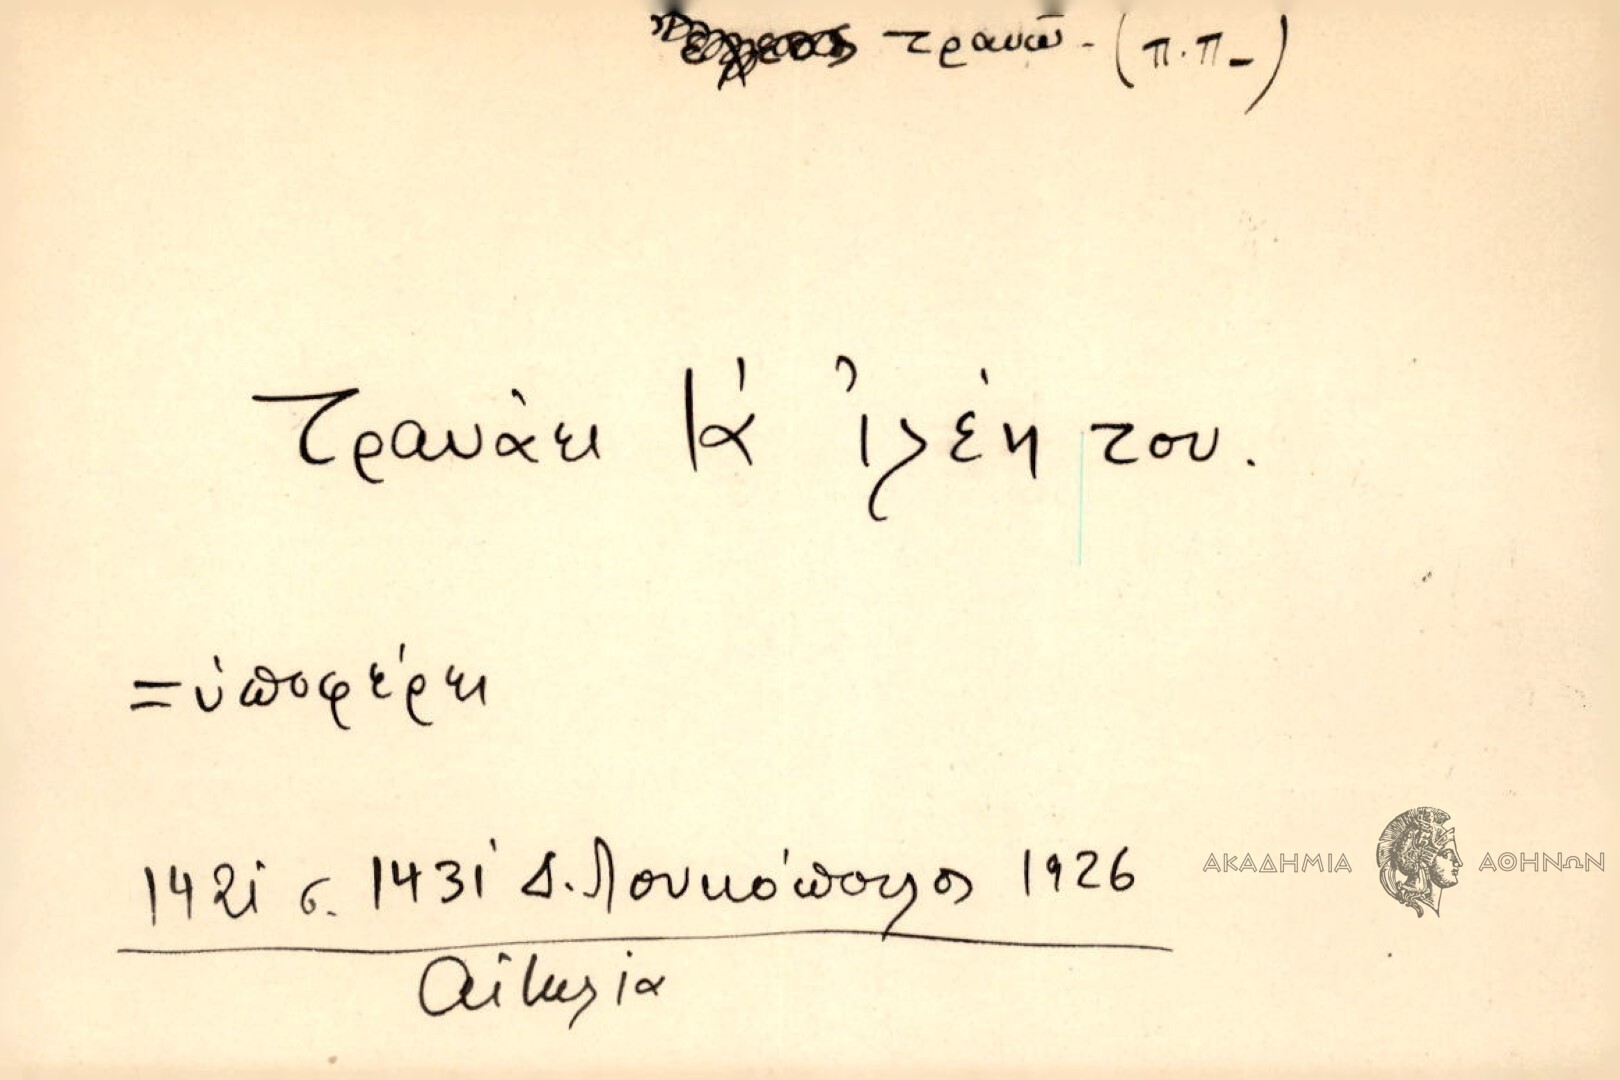 τραυῶ - (π.π-)
Τραυάει κ' ἀ ἰλέη του.
= ὑποφέρει
1421 σ. 1431 Δ. Λουκόπουλος 1926
Αἰτωλία
ΑΚΑΔΗΜΙΑ ΑΘΗΝΩΝ